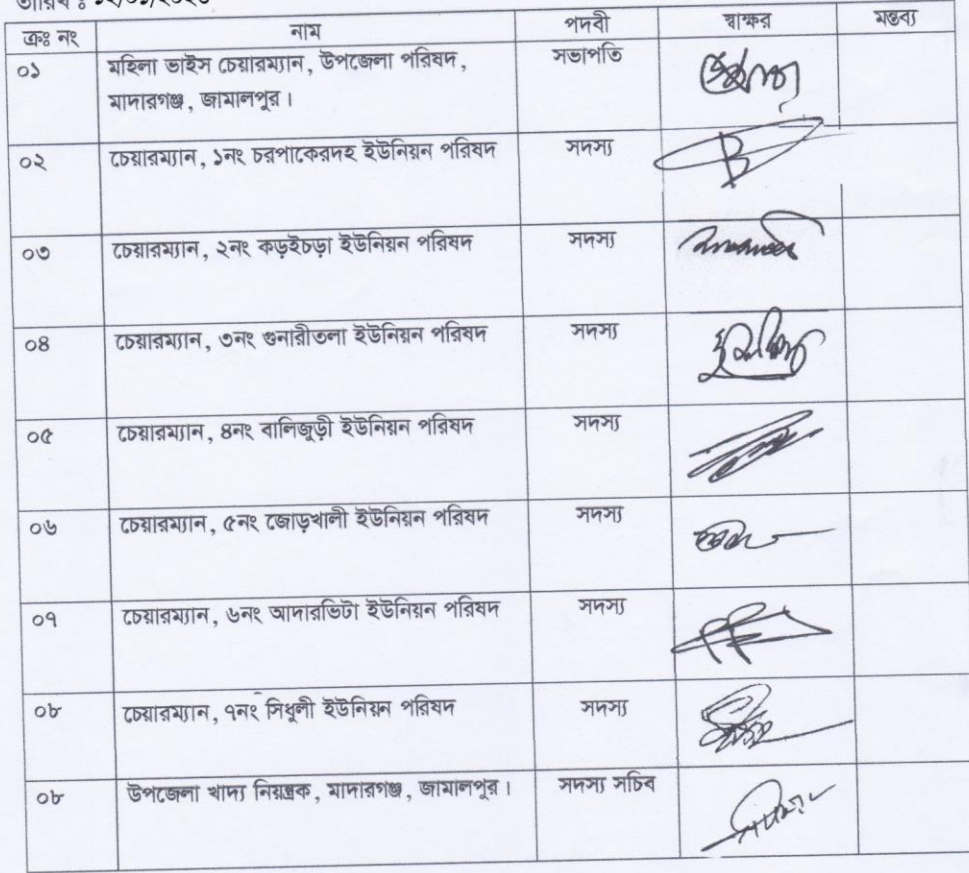 ক্রঃ নং নাম পদবী স্বাক্ষর মন্তব্য
০১ মহিলা ভাইস চেয়ারম্যান, উপজেলা পরিষদ, সভাপতি
মাদারগঞ্জ, জামালপুর।
০২ চেয়ারম্যান, ১নং চরপাকেরদহ ইউনিয়ন পরিষদ সদস্য
০৩ চেয়ারম্যান, ২নং কড়ইচড়া ইউনিয়ন পরিষদ সদস্য
০৪ চেয়ারম্যান, ৩নং গুনারীতলা ইউনিয়ন পরিষদ সদস্য
০৫ চেয়ারম্যান, ৪নং বালিজুড়ী ইউনিয়ন পরিষদ সদস্য
০৬ চেয়ারম্যান, ৫নং জোড়খালী ইউনিয়ন পরিষদ সদস্য
০৭ চেয়ারম্যান, ৬নং আদারভিটা ইউনিয়ন পরিষদ সদস্য
০৮ চেয়ারম্যান, ৭নং সিধুলী ইউনিয়ন পরিষদ সদস্য
০৮ উপজেলা খাদ্য নিয়ন্ত্রক, মাদারগঞ্জ, জামালপুর। সদস্য সচিব